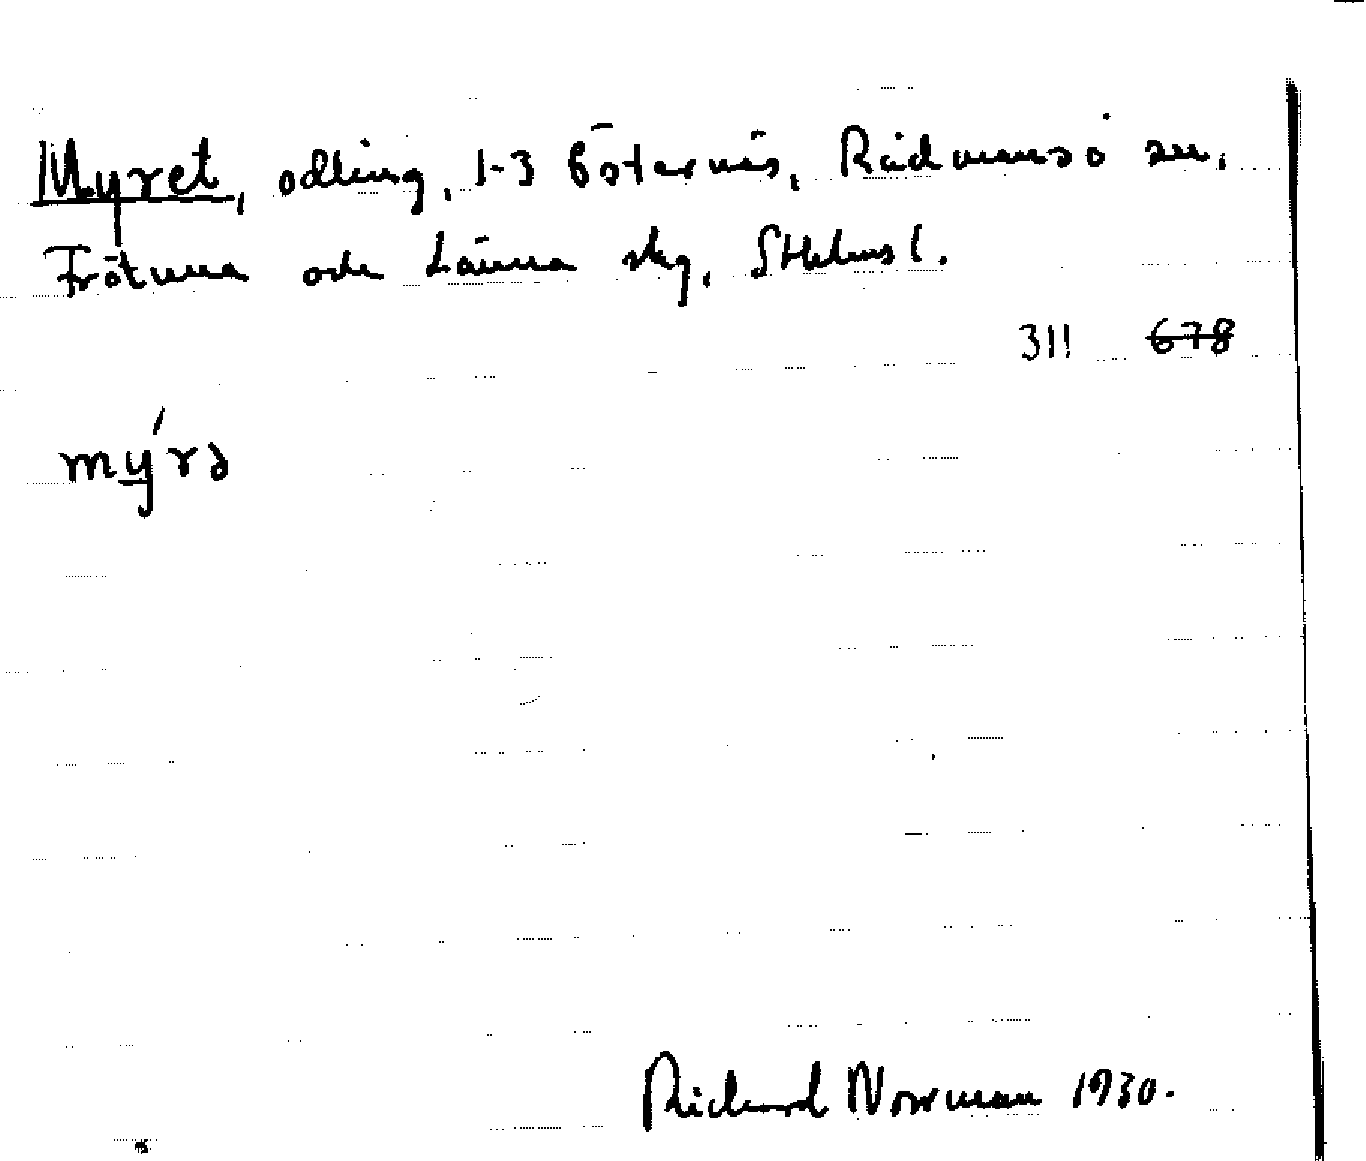 Myret, odling, 1-3 Östernäs, Rådmansö sn,
Frötuna och Länna skg, Sthlms l.
311 678
mýrə
Richard Norrman 1930.